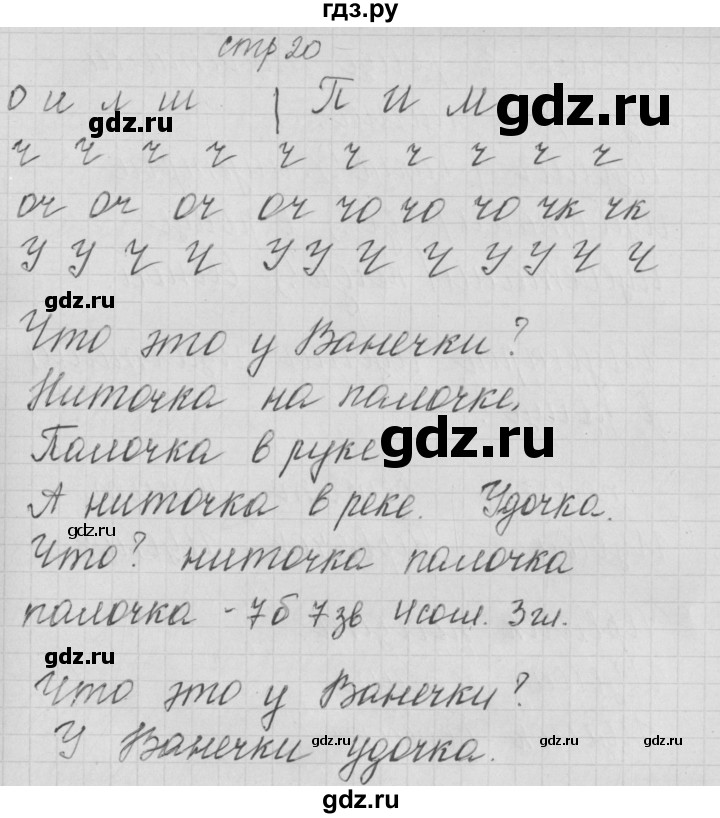 гдз.ру
стр 20
о и л ш | П И М
gdz.ru
gdz.ru
ч ч ч ч ч ч ч ч ч ч
оч оч оч оч чо чо чо чк чк
У У Ч Ч У У Ч Ч У У Ч Ч
gdz.ru
Что это у Ванечки?
Ниточка на палочке,
Палочка в руке
gdz.ru
А ниточка в реке. Удочка.
gdz.ru
Что? ниточка палочка
палочка - 7б 7зв 4согл. 3гл.
gdz.ru
Что это у Ванечки?
У Ванечки удочка.
gdz.ru
gdz.ru
gdz.ru
gdz.ru